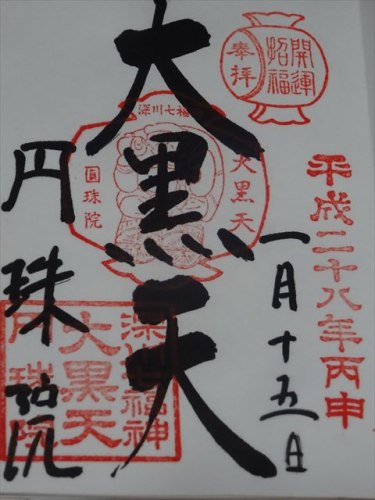 奉拝
開運
招福
平成二十八年丙申
一月十五日
深川七福
大黒天
大黒天
圓珠院
円珠院
深川福神
大黒天
円珠院